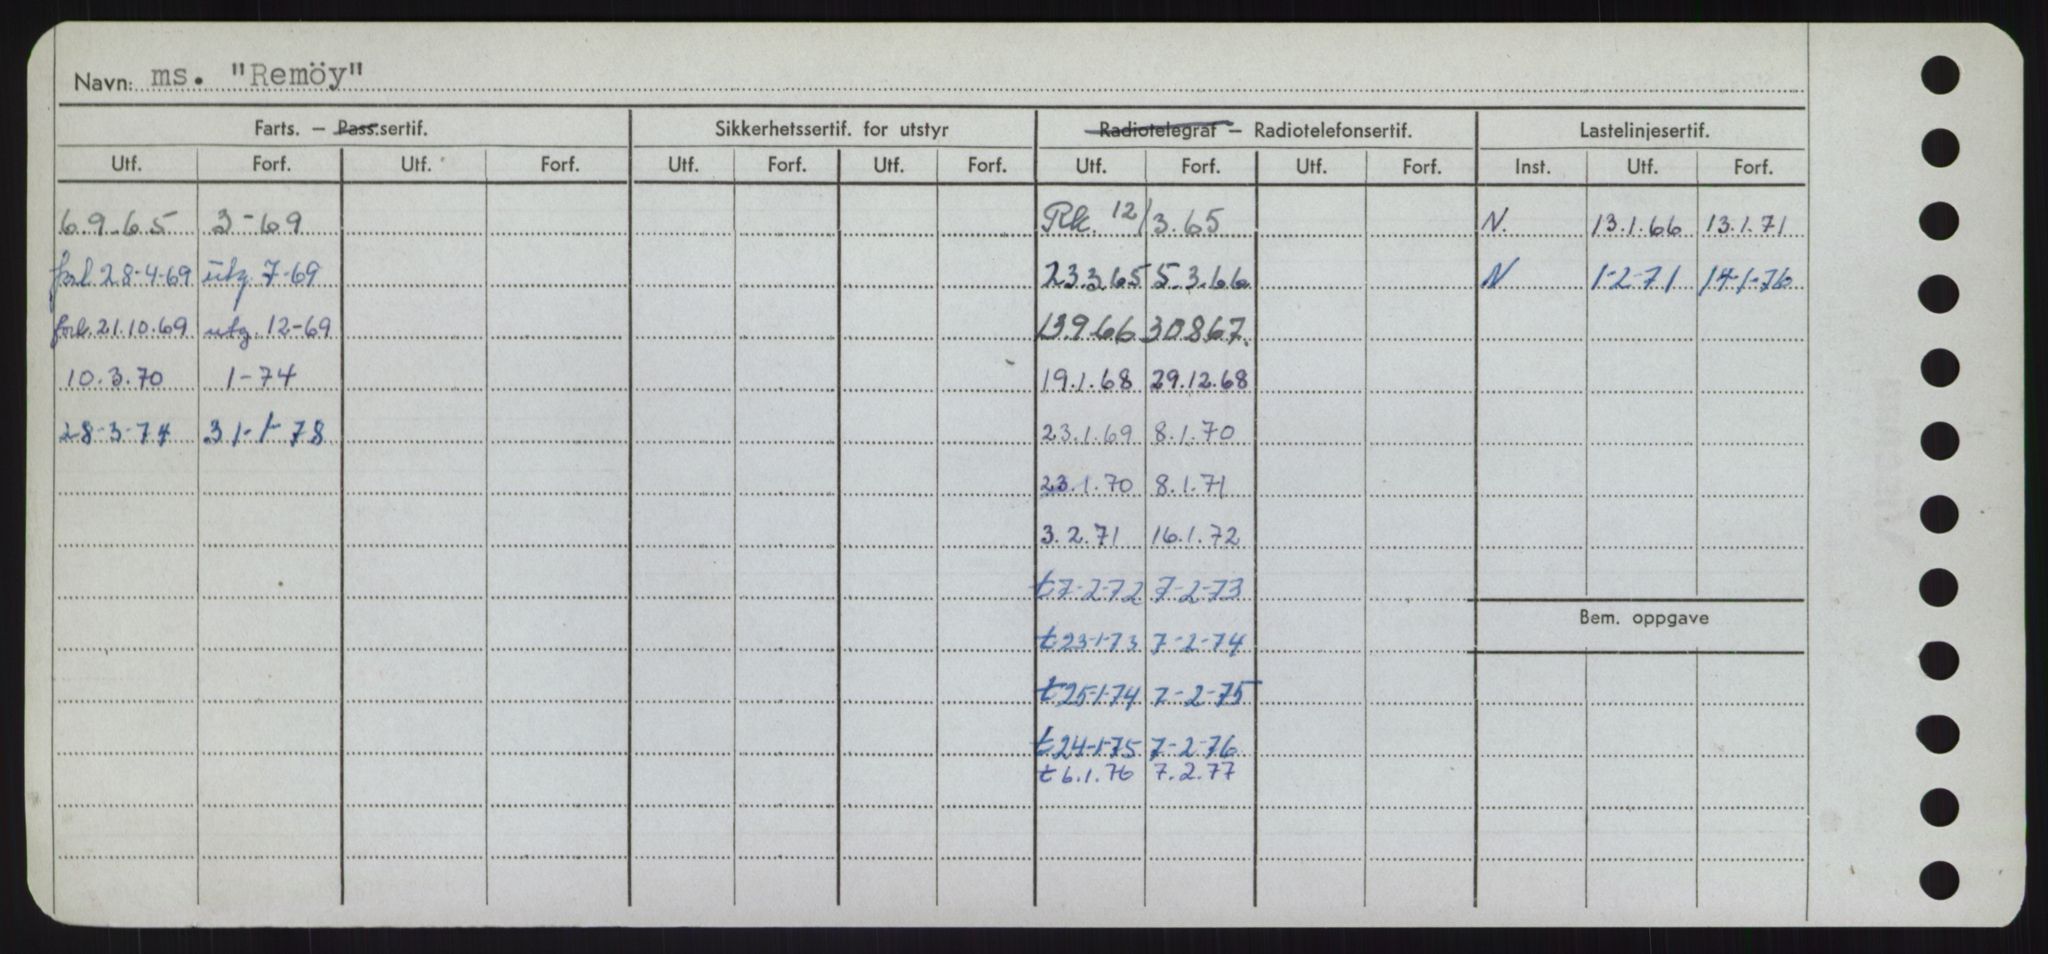 Navn: ms. "Remöy"
Farts. – Pass.sertif. Sikkerhetssertif. for utstyr Radiotelegraf – Radiotelefonsertif. Lastelinjesertif.
Utf. Forf. Utf. Forf. Utf. Forf. Utf. Forf. Utf. Forf. Utf. Forf. Inst. Utf. Forf.
6.9.65 3-69 Rk. 12/3.65 N. 13.1.66 13.1.71
forl. 28-4-69 utg. 7-69 23.3.65 5.3.66 N 1-2-71 14-1-76
forl. 21.10.69 utg. 12-69 13.9.66 30867.
10.3.70 1-74 19.1.68 29.12.68
28-3-74 31-1-78 23.1.69 8.1.70
23.1.70 8.1.71
3.2.71 16.1.72
t 7-2-72 7-2-73
Bem. oppgave
t 23-1-73 7-2-74
t 25-1-74 7-2-75
t 24-1-75 7-2-76
t 6.1.76 7.2.77